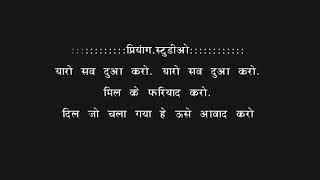 :::::::::::प्रियांग.स्टुडीओ:::::::::::
यारो सव दुआ करो. यारो सव दुआ करो.
मिल के फरियाद करो.
दिल जो चला गया हे ऊसे आवाद करो